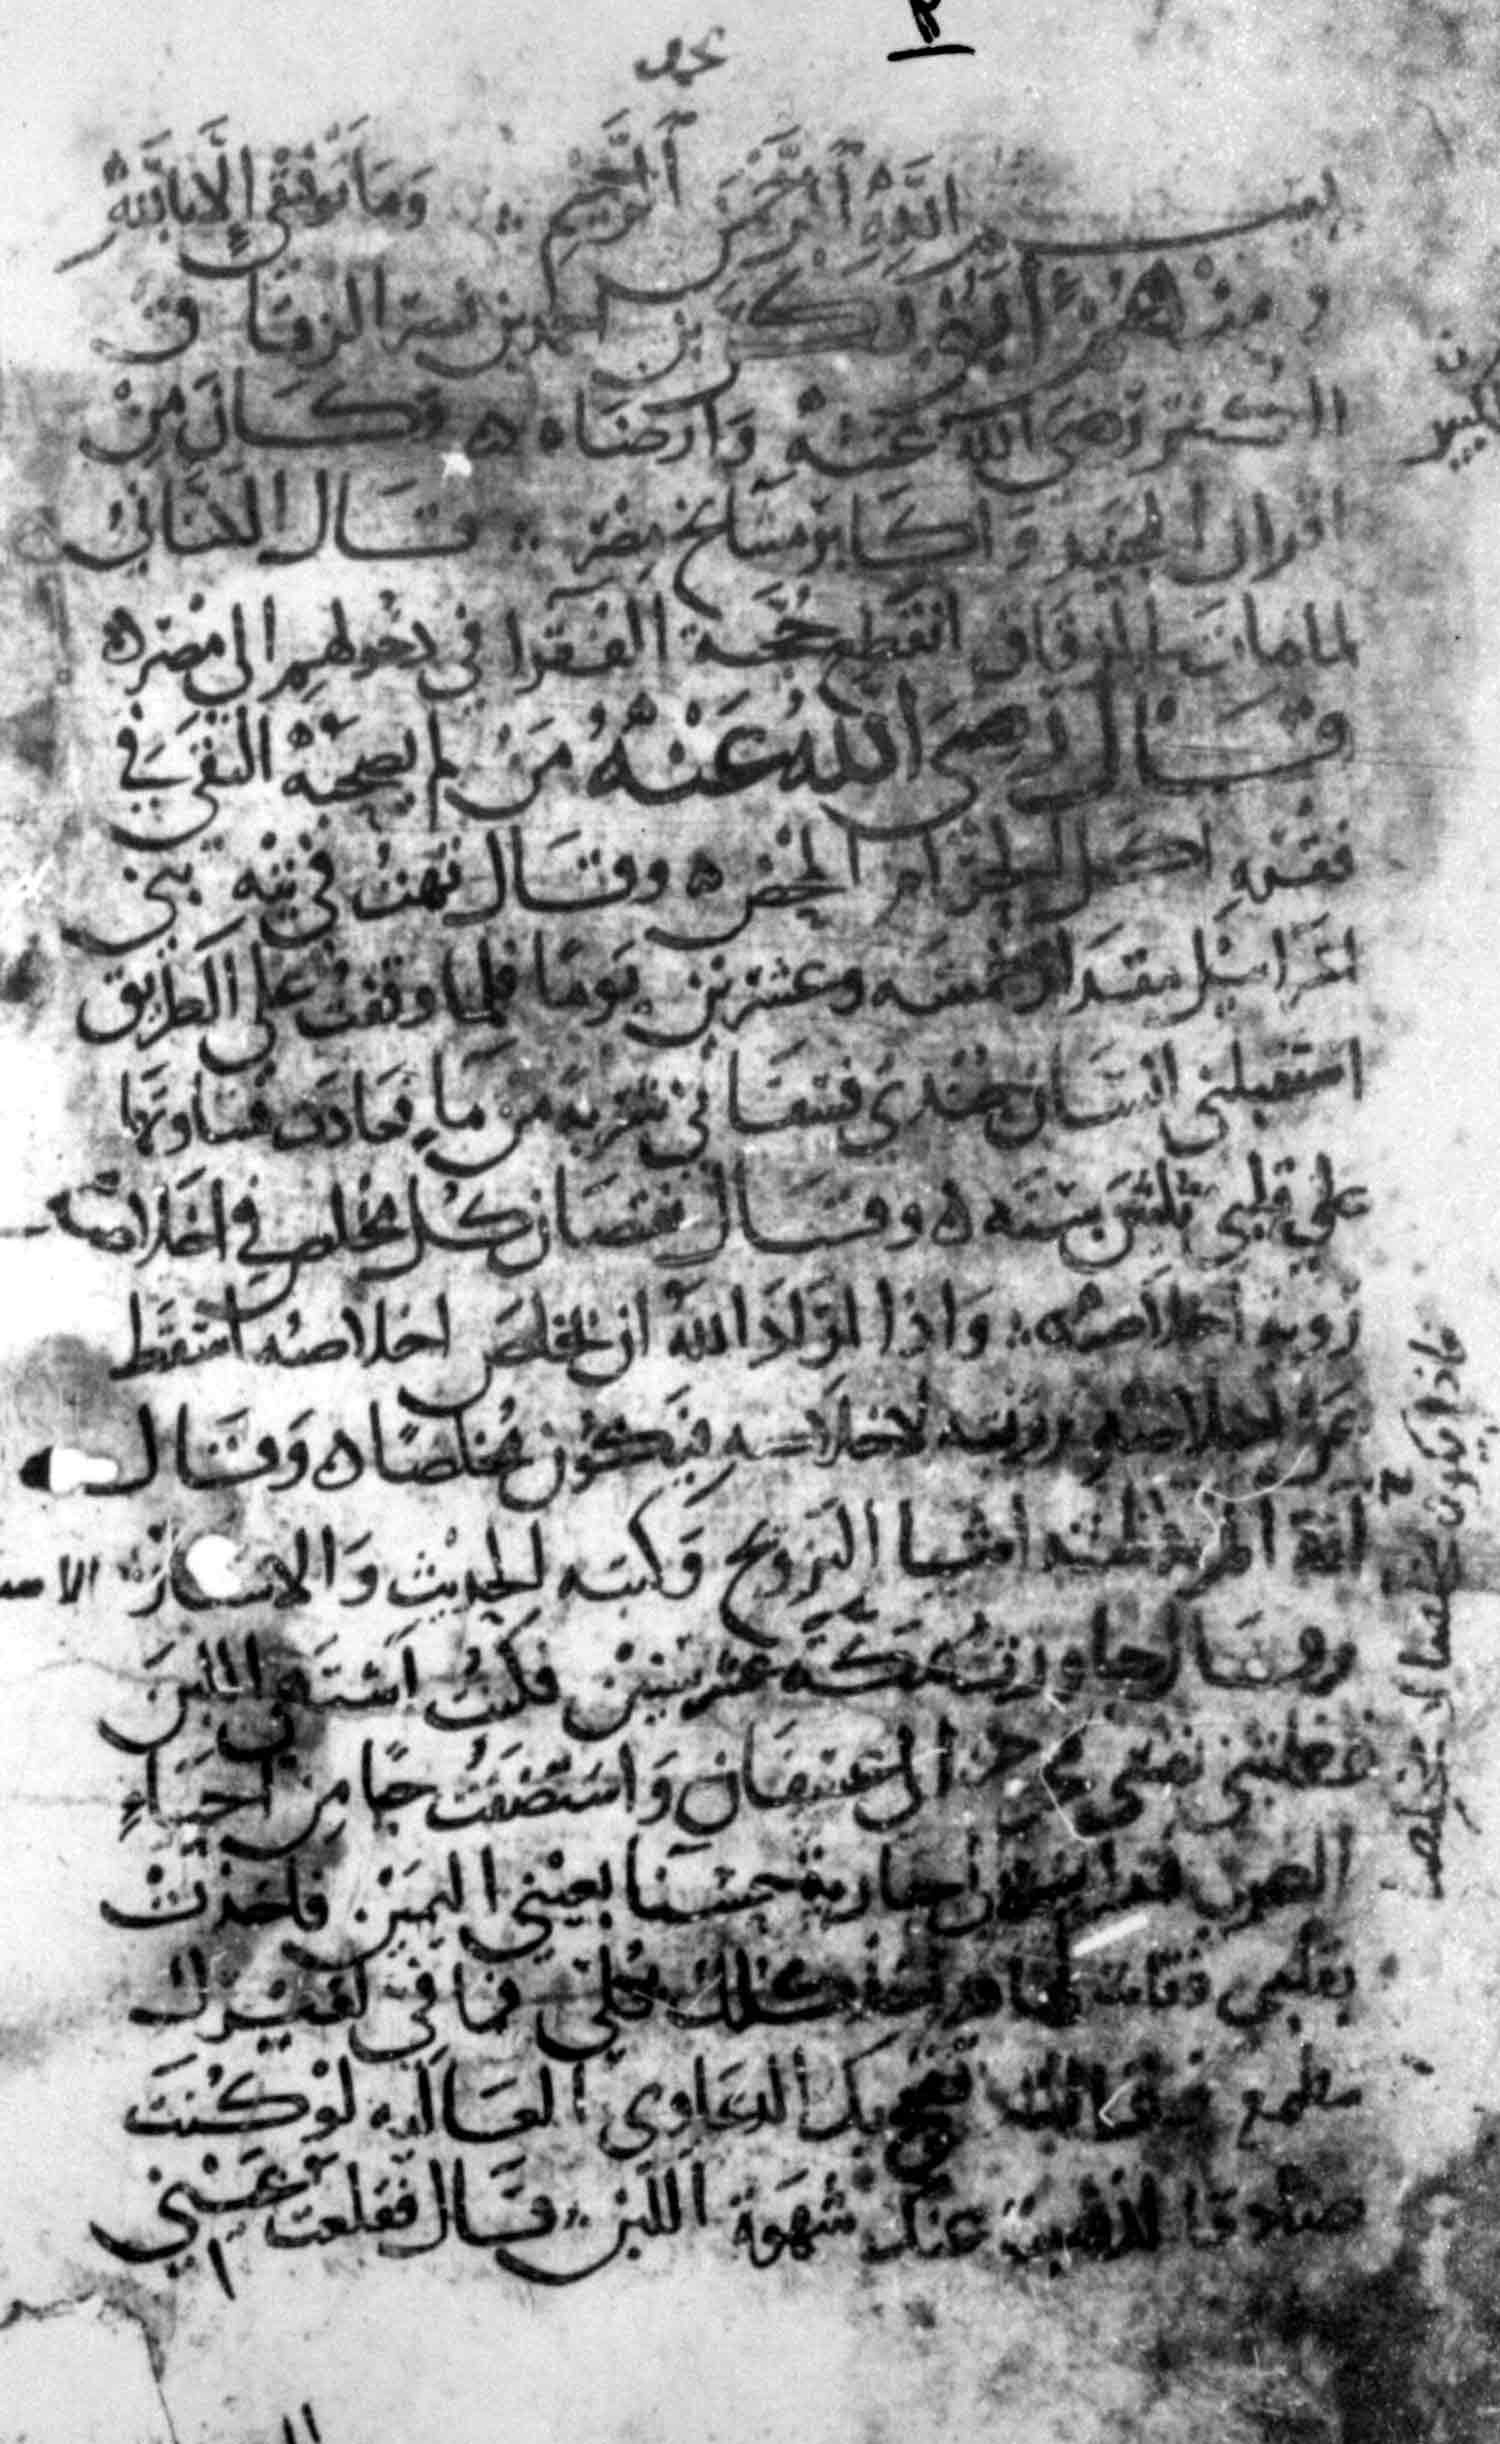 بسم الله الرحمن الرحيم وما توفيقي الا بالله
ومنهم ابو بكر بن احمد بن نصر الزقاق
رضي الله عنه وارضاه وكان من
اقران الجنيد و اكابر مشايخ مصر قال الكتاني
لما مات الزقاق انقطع حجة الفقرا في دخولهم الى مصر
قال رضي الله عنه من لم يصحبه التقى في
فقره اكل الحرام المحض وقال تهت في تيه بني
اسرائيل مقدار خمسه وعشرين يوما فلما وقفت على الطريق
استقبلني انسان جندي فسقاني شربه من ما فعادت قساوتها
على قلبي ثلثين سنه وقال نقصان كل مخلص في اخلاصه
روية اخلاصه واذا اراد الله ان يخلص اخلاصه اسقط
عن اخلاصه رويته لاخلاصه فيكون مخلصا وقال
افة المريد ثلثة اشيا التزويج وكتبه الحديث والاسفار
وقال جاورت بمكة عشر سنين فكنت اشتهي اللبن
فغلبتني نفسي فخرجت الى عسفان واستضفت حيا من احياء
العرب فرايت جارية حسنا بعيني اليمين فاخذت
بقلبي فقلت لها قد اخذ كلك كلي فما في لغيرك
مطمع فقالت تقبح بك الدعاوى العاليه لو كنت
صادقا لذهبت عنك شهوة اللبن قال فقلعت عيني
فاذا يكون